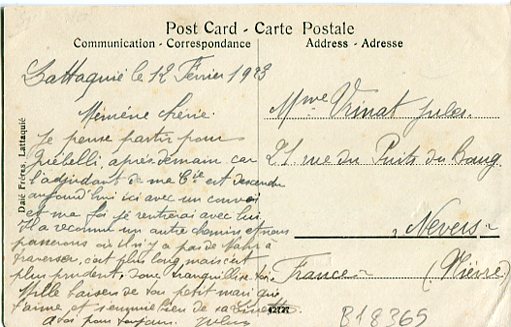 Post Card - Carte Postale
Communication - Correspondance
Address - Adresse
Lattaquié le 12 Février 1923
Mémène chérie.
Je pense partir pour
après demain car
l'adjudant de ma Cie est descendu
aujourd'hui ici avec un convoi
et ma foi je rentrerai avec lui.
Il a reconnu un autre chemin et nous
passerons où il n'y a pas de à
traverser, c'est plus long mais c'est
plus prudent, donc tranquillise toi.
Mille baisers de ton petit mari qui
t'aime et s'ennuie bien de sa
à toi pour toujours. Jules
Mme Vrinat Jules
21 rue du Puits du Bourg
Nevers
France (Nièvre)
Daié Frères, Lattaquié
B18365